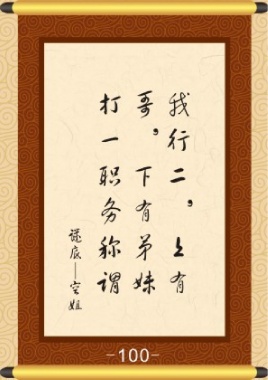 我行二，上有
哥，下有弟妹
打一职务称谓
谜底——空姐
-100-